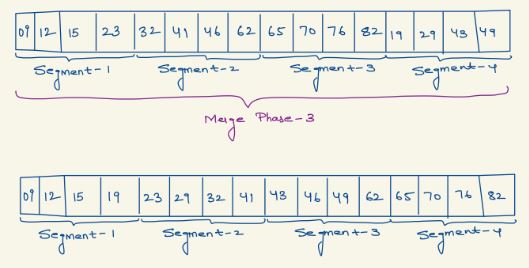 09 12 15 23 32 41 46 62 65 70 76 82 19 29 43 49
Segment-1 Segment-2 Segment-3 Segment-4
Merge Phase-3
09 12 15 19 23 29 32 41 43 46 49 62 65 70 76 82
Segment-1 Segment-2 Segment-3 Segment-4